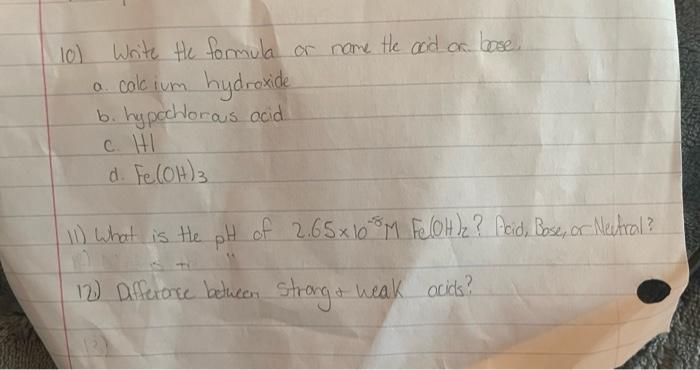 10) Write the formula or name the acid or base.
a. calcium hydroxide
b. hypochlorous acid
c. HI
d. Fe(OH)3
11) What is the pH of 2.65x10⁻⁸M Fe(OH)2? Acid, Base, or Neutral?
12) Difference between strong + weak acids?
13)